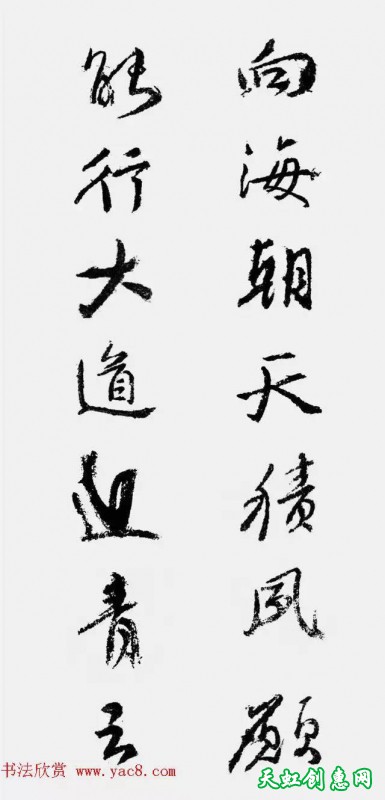 向海朝天積夙願
能行大道迎青云
书法欣赏 www.yac8.com
天虹创意网